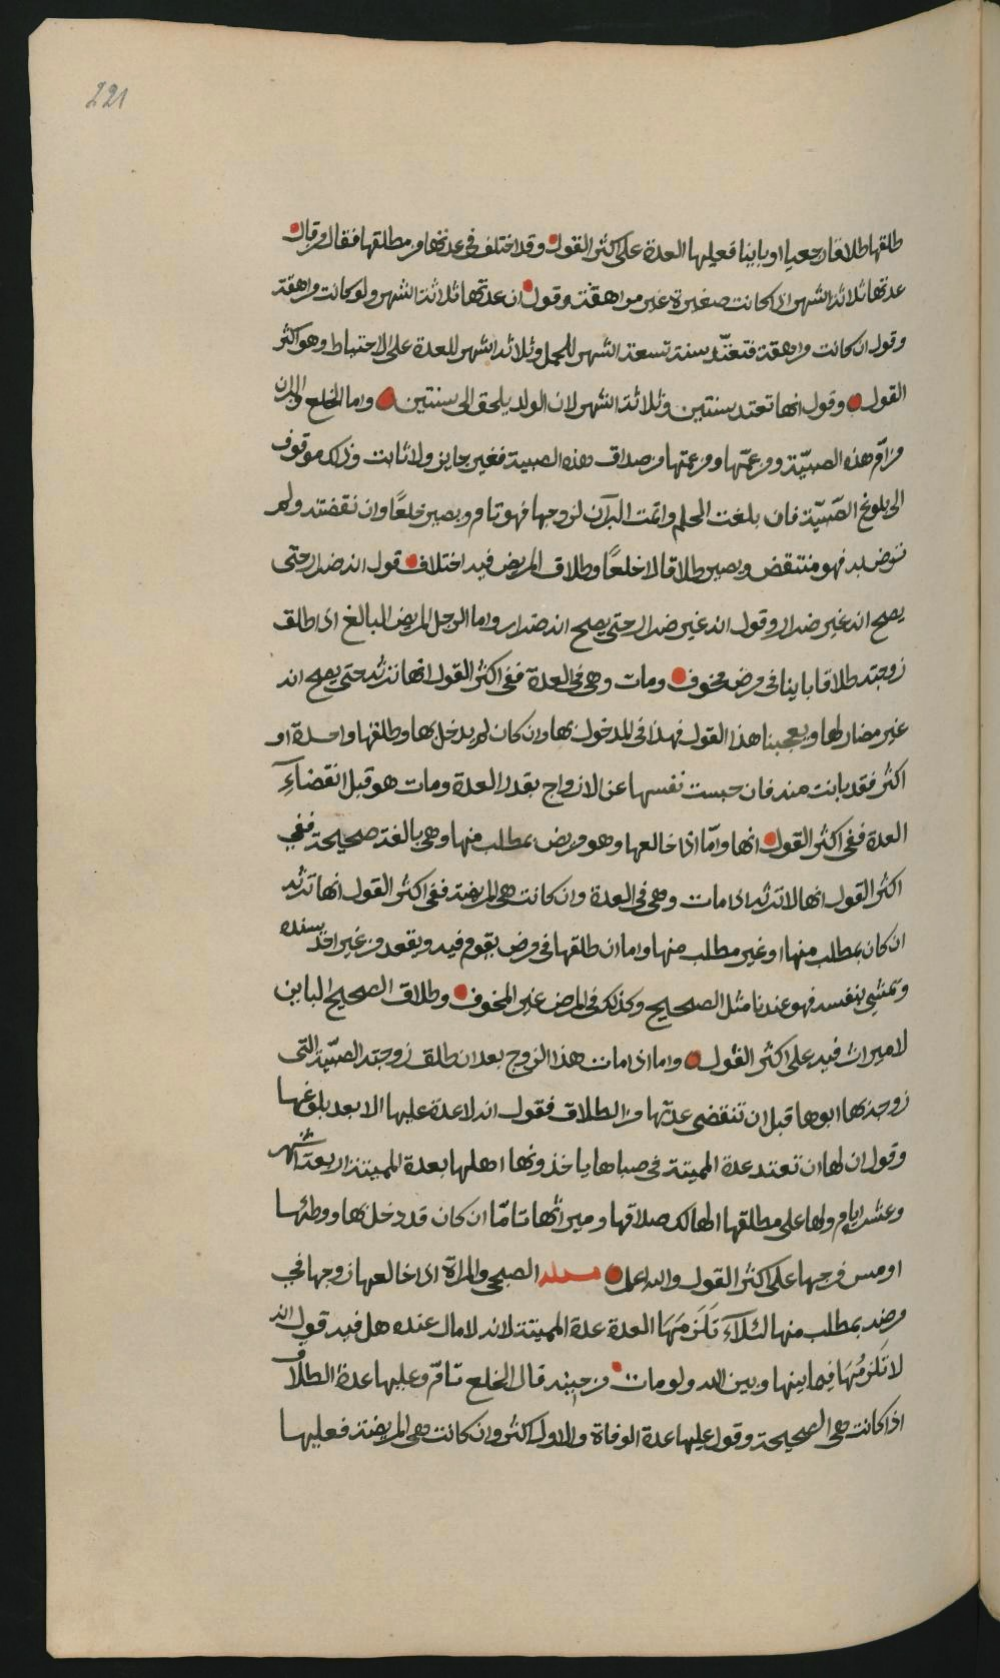 221
طلقها طلاقا رجعيا او باينا فعليها العدة على اكثر القول وقد اختلف في عدتها من مطلقها فقال من قال
عدتها ثلاثة اشهر اذا كانت صغيرة غير مراهقة وقول ان عدتها ثلاثة اشهر ولو كانت مراهقة
وقول ان كانت مراهقة فتعتد سنة تسعة اشهر للحمل وثلاثة اشهر للعدة على الاحتياط وهو اكثر
القول وقول انها تعتد سنتين وثلاثة اشهر لان الولد يلحق الى سنتين واما الخلع والبرآن
من ام هذه الصبيّة ومن عمّتها ومن عمتها من صداق هذه الصبية فغير جايز ولا ثابت وذلك موقوف
الى بلوغ الصّبيّة فان بلغت الحلم واتمت البرآن لزوجها فهو تام ويصير خلعًا وان نقضته ولم
ترض به فهو منتقض ويصير طلاقا لا خلعًا وطلاق المريض فيه اختلاف قول انه ضرار حتى
يصح انه غير ضرار وقول انه غير ضرار حتى يصح انه ضرار واما الرجل المريض البالغ اذا طلق
زوجته طلاقا باينا في مرض مخوف ومات وهي في العدة ففي اكثر القول انها ترثه حتى يصح انه
غير مضار لها ويعجبنا هذا القول فهذا في المدخول بها وان كان لم يدخل بها وطلقها واحدة او
اكثر فقد بانت منه فان حبست نفسها عن الازواج بقدر العدة ومات هو قبل انقضاءِ
العدة ففي اكثر القول انها وامّا اذا خالعها وهو مريض بمطلب منها وهي بالغة صحيحة ففي
اكثر القول انها لا ترثه اذا مات وهي في العدة وان كانت هي المريضة ففي اكثر القول انها ترثه
ان كان بمطلب منها او غير مطلب منها واما ان طلقها في مرض يقوم فيه ويقعد من غير احد يسنده
وتمشي بنفسه فهو عندنا مثل الصحيح وكذلك في المرض غير المخوف وطلاق الصحيح الباين
لا ميراث فيه على اكثر القول واما اذا مات هذا الزوج بعد ان طلق زوجته الصبيّة التي
زوجه بها ابوها قبل ان تنقضي عدتها من الطلاق فقول انه لا عدة عليها الا بعد بلوغها
وقول ان لها ان تعتد عدة المميتة في صباها ياخذونها اهلها بعدة المميتة اربعة اشهر
وعشر ايام ولها على مطلقها الهالك صداقها وميراثها تامّا ان كان قد دخل بها ووطئها
او مس فرجها على اكثر القول والله اعلم مسلة الصبحي والمراة اذا خالعها زوجها في
مرضه بمطلب منها لئلآءَ تَلَزمَهَا العدة عدة المميتة لانه لا مال عنده هل فيه قول انه
لا تَلزمُهَا فيما بينها وبين الله ولو مات من حينه قال الخلع تامّ وعليها عدة الطلاق
اذا كانت هي الصحيحة وقول عليها عدة الوفاة والاول اكثر وان كانت هي المريضة فعليها